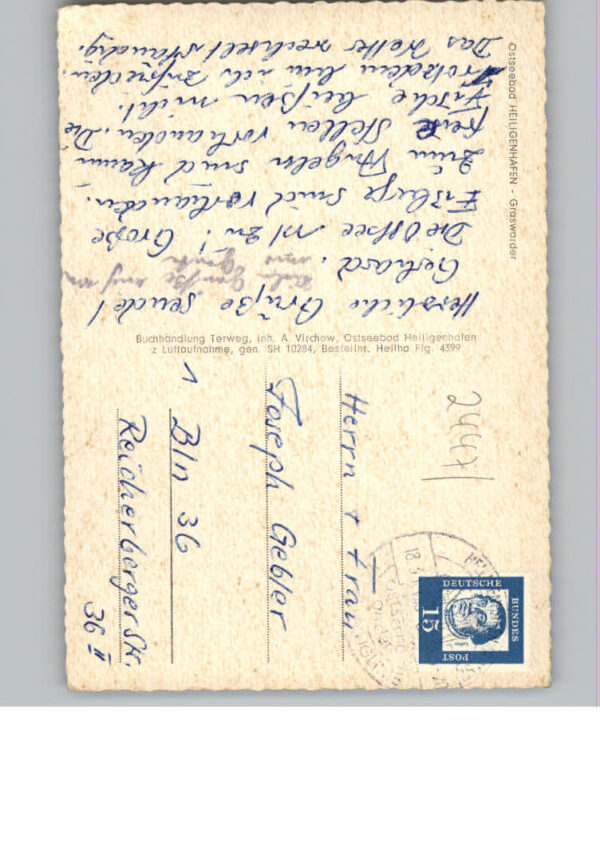 Ostseebad HEILIGENHAFEN - Graswarder
Herzliche Grüße sendet
Gerhard.
Die Ostsee ist zu! Große
Eisberge sind vorhanden.
Zum Angeln sind kaum
Stellen vorhanden. Die
Fische beißen nicht.
Trotzdem bin ich zufrieden.
Das Wetter wechselt ständig.
Buchhandlung Terweg, Inh. A. Virchow, Ostseebad Heiligenhafen
z Luftaufnahme, gen. SH 10284, Bestellnr. Heilha Flg. 4399
2447
DEUTSCHE
BUNDES
POST
15
Herrn + Frau
Joseph Gebler
1 Bln 36
Reichenberger Str.
36 II